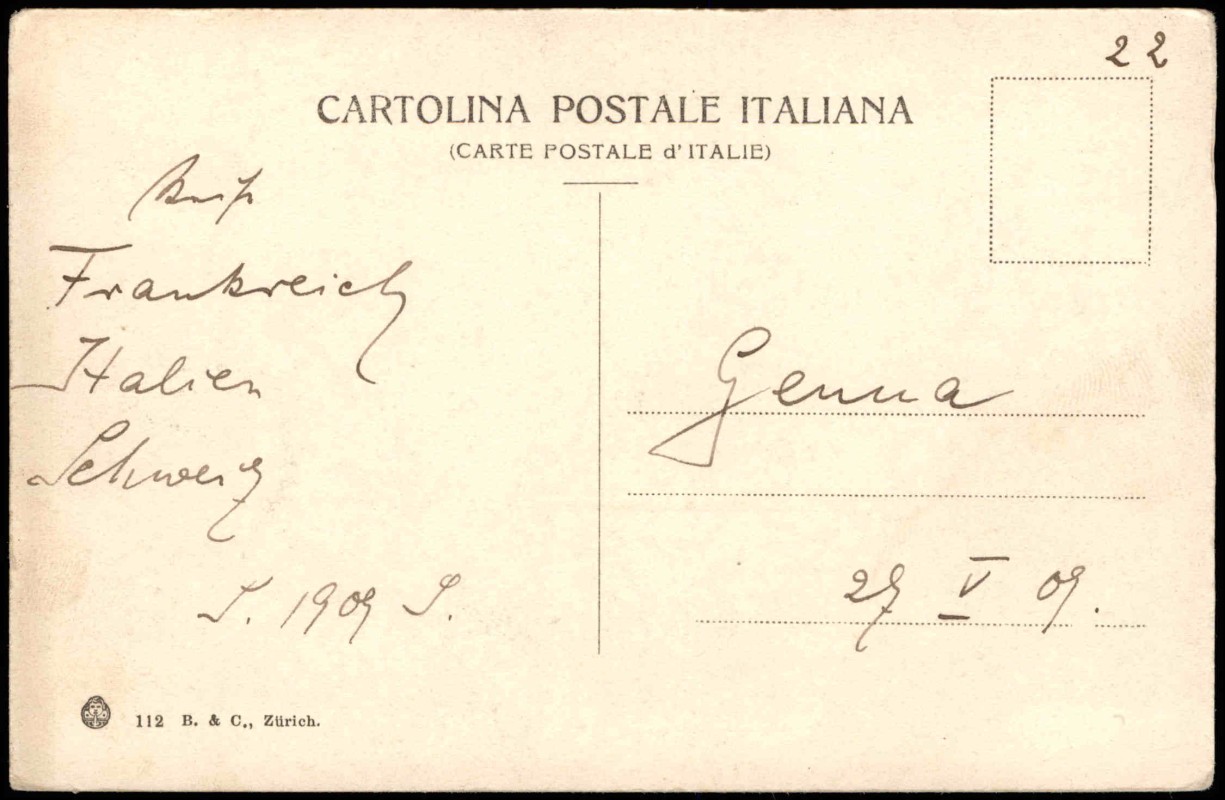 22
CARTOLINA POSTALE ITALIANA
(CARTE POSTALE d'ITALIE)
Frankreich
Italien
Schweiz
S. 1909 S.
Genua
27 V 09.
112 B. & C., Zürich.